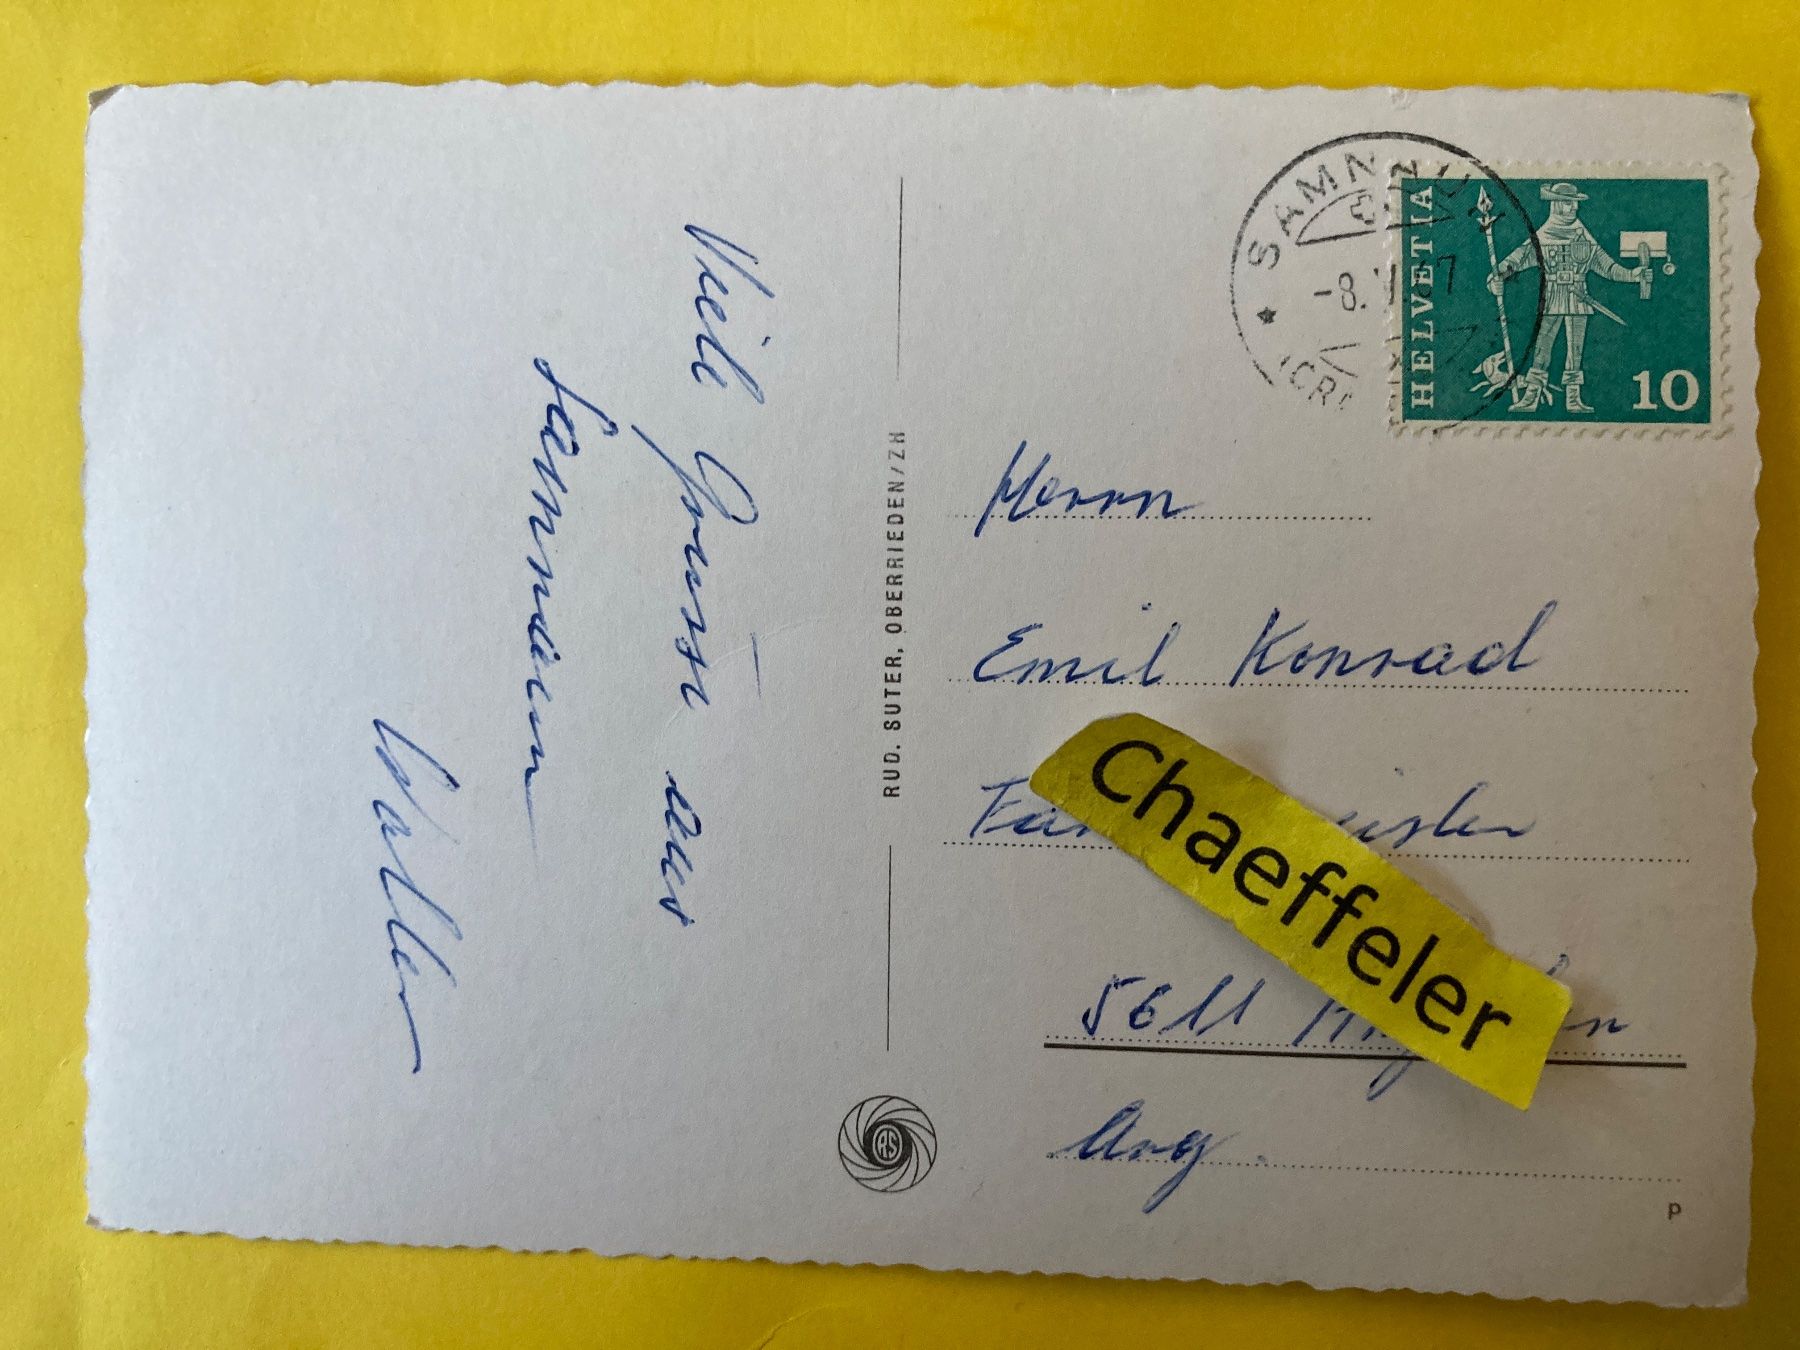 Viele Grüsse aus
Samnaun
Walter
RUD. SUTER, OBERRIEDEN/ZH
RS
SAMNAUN
-8.
HELVETIA
10
Herrn
Emil Konrad
Chaeffeler
5611
Arg.
P